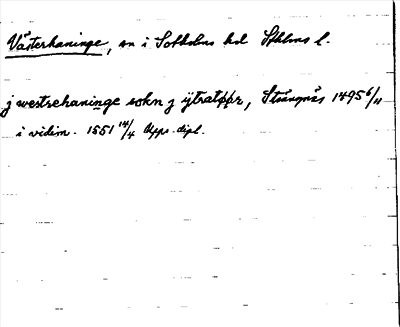 Västerhaninge, sn i Sotholms hd Sthlms l.
j westrehaninge sokn j ytratøør, Strängnäs 1495 6/11
i vidim. 1551 14/4 Upps. dipl.